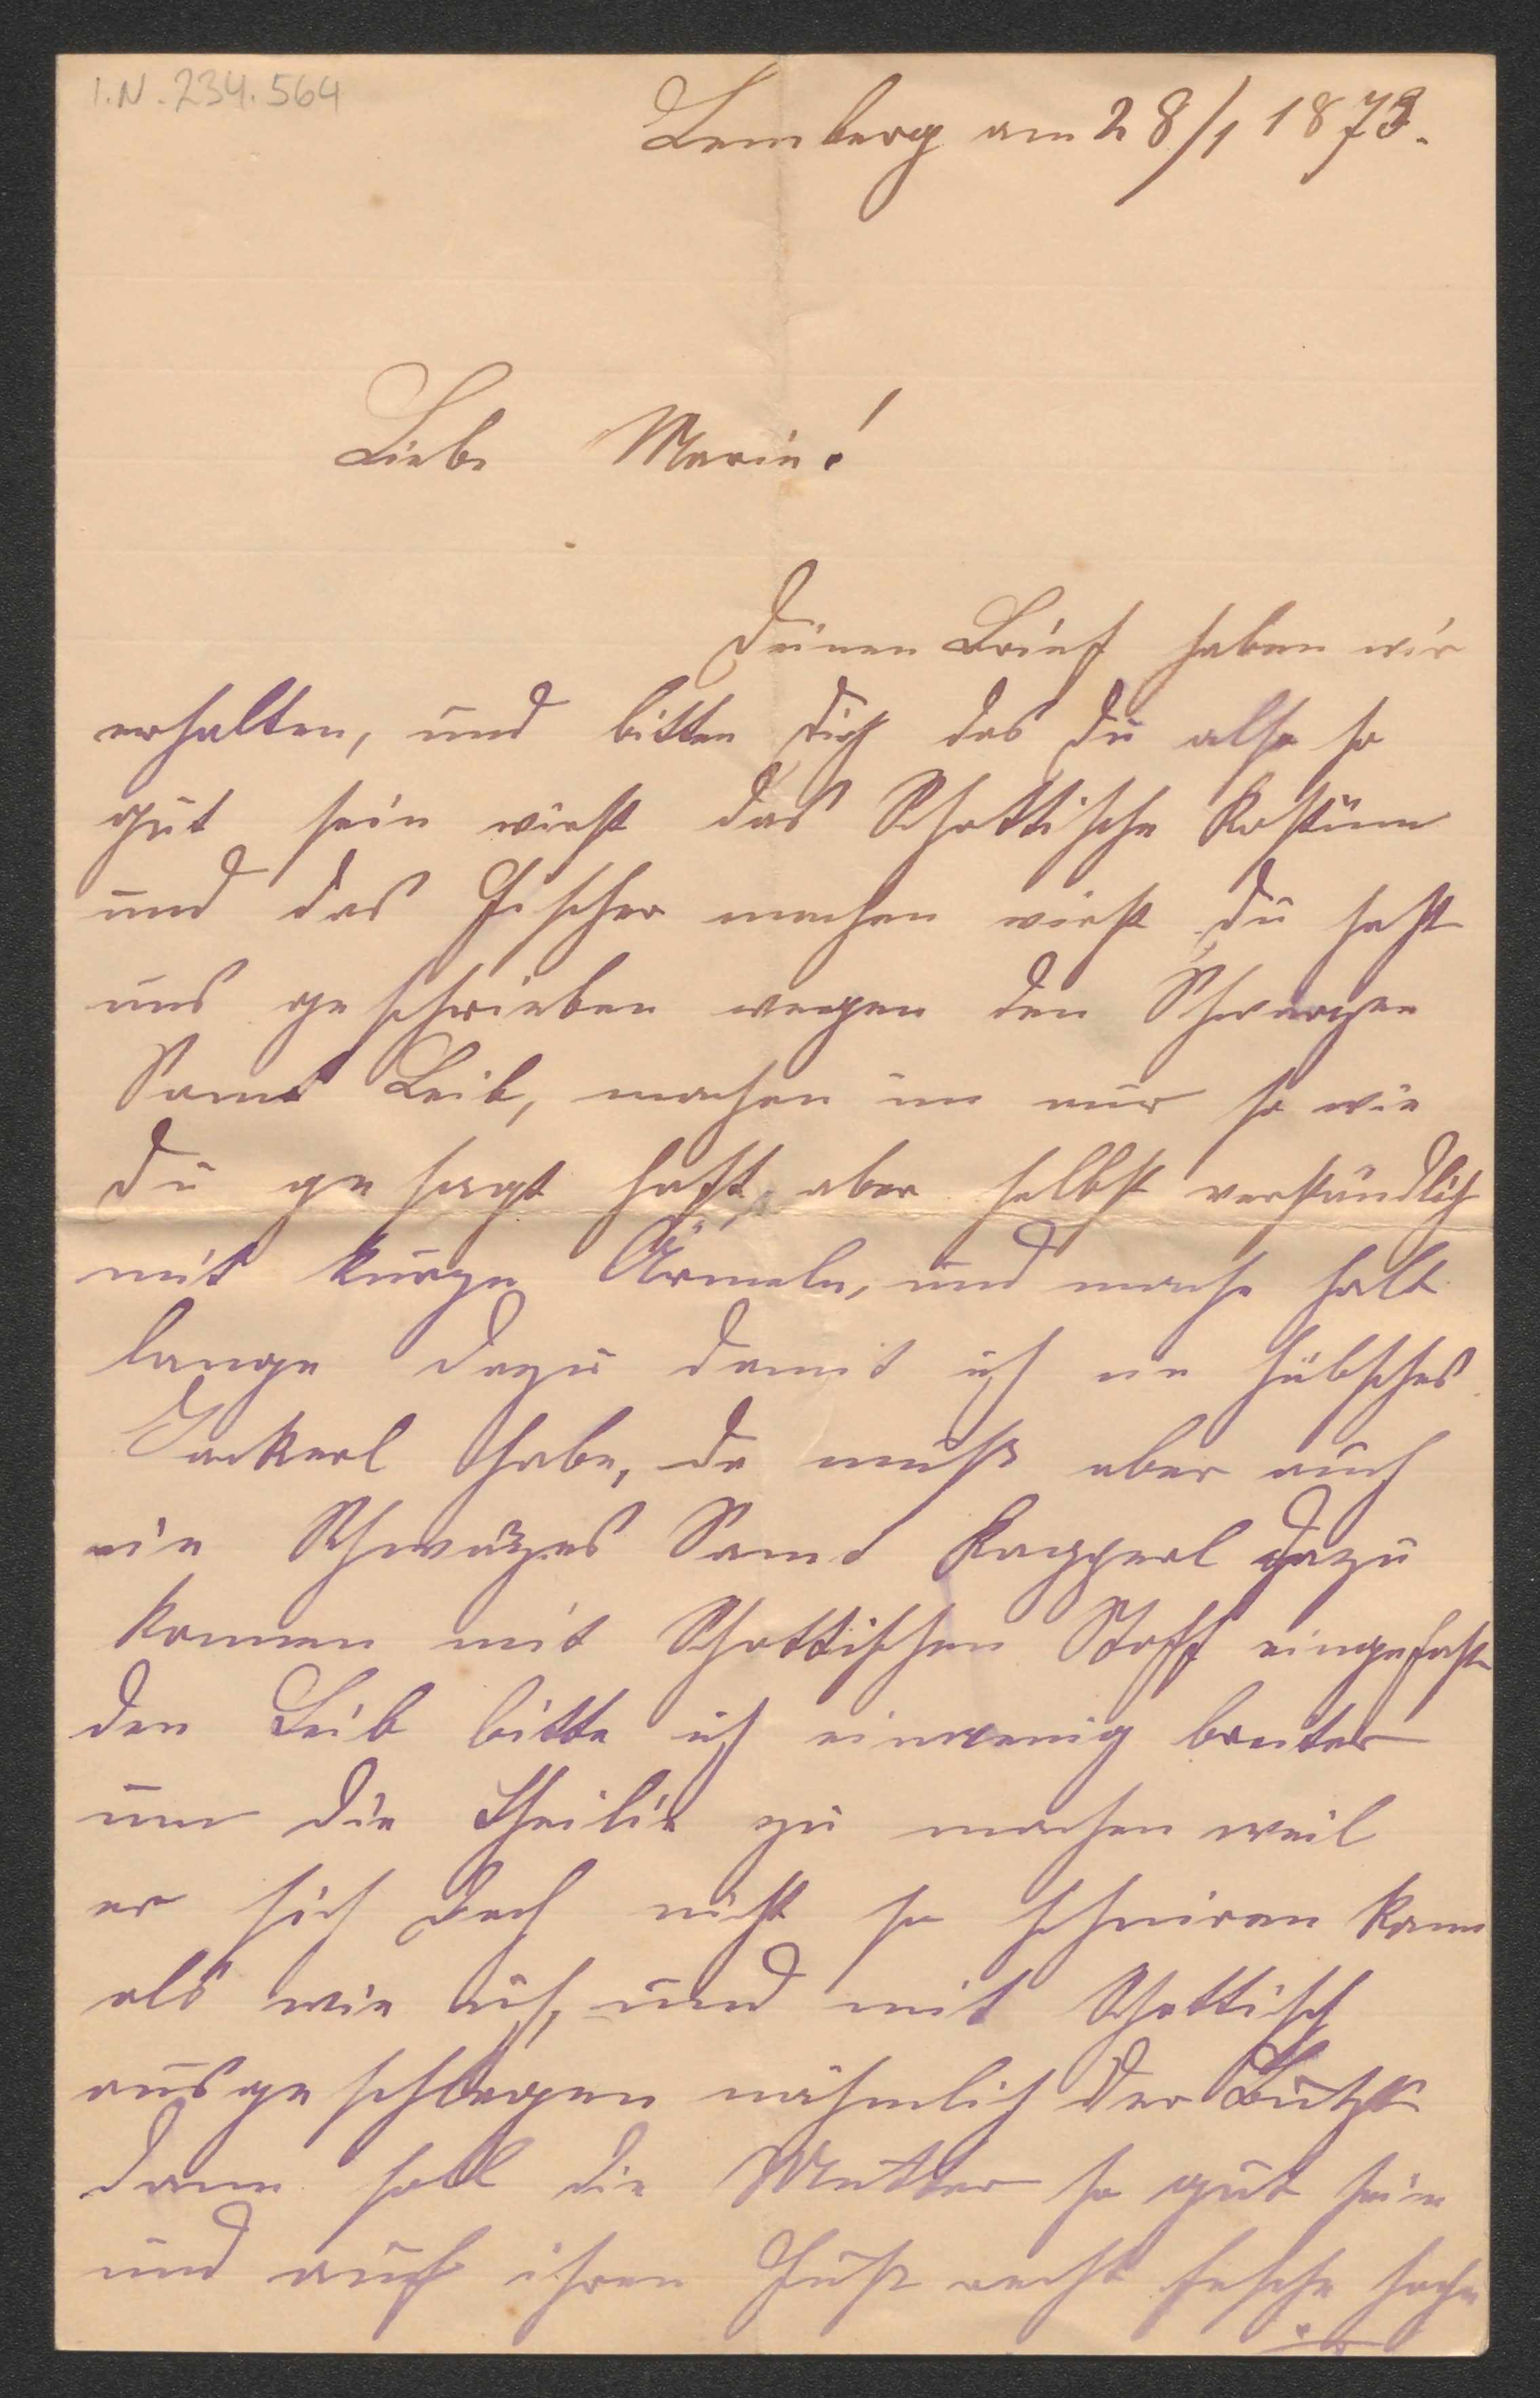 I.N. 234.564
Lemberg am 28/1 1879.
Liebe Marie!
Deinen Brief haben wir
erhalten, und bitten dich das du also so
gut sein wirst das Schottische Kostüm
und das Fischer machen wirst du hast
uns geschrieben wegen den Schwarzen
Samt Leib, machen im nur so wie
du gesagt hast, aber selbst verständlich
mit kurze Ärmeln, und mache halt
lange dazu damit ich ein hübsches
Jackerl habe, da muß aber auch
ein Schwarzes Samt Kapperl dazu
kommen mit Schottischen Stoff eingefast
den Leib bitte ich einwenig breiter
um die Theilie zu machen weil
er sich doch nicht so schniren kann
als wie ich, und mit Schottisch
ausgeschlagen nähmlich der
dann soll die Mutter so gut sein
und auf ihren Fuß recht fesche hohe